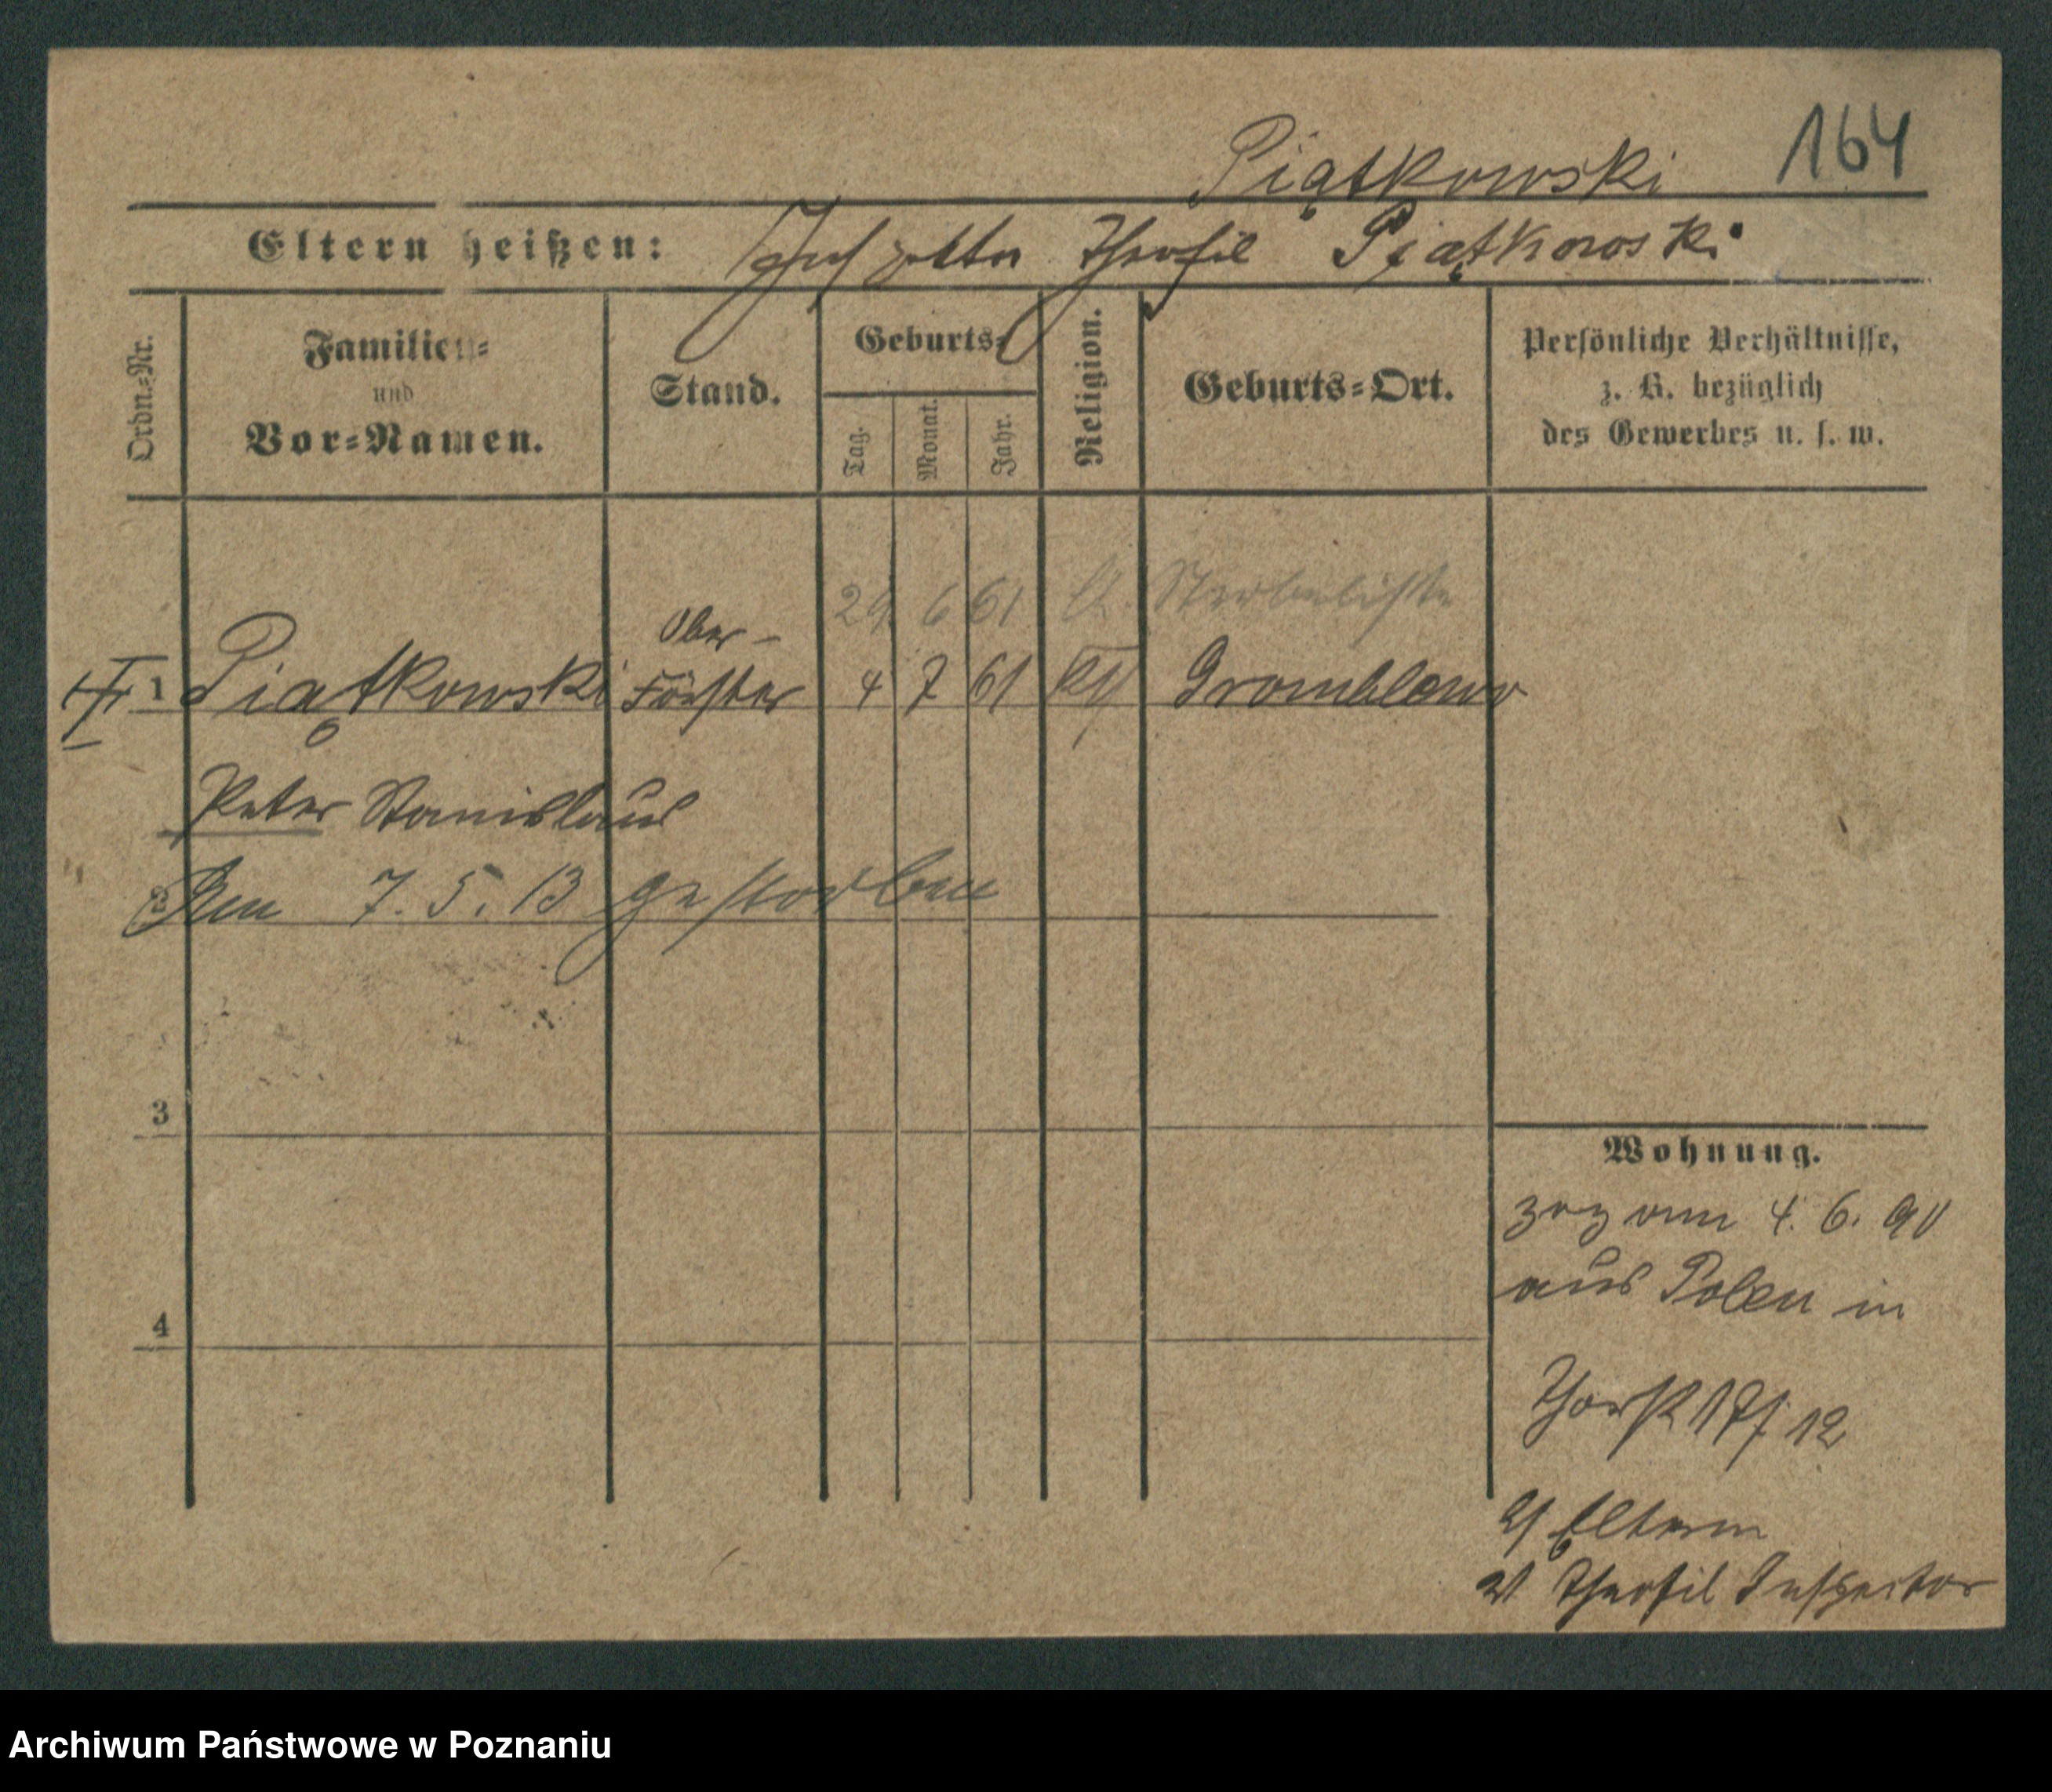 Piątkowski 164
Eltern heißen: Theofil Piątkowski
Ordn.-Nr.
Familien-
und
Vor-Namen.
Stand.
Geburts-
Tag.
Monat.
Jahr.
Religion.
Geburts-Ort.
Persönliche Verhältnisse,
z. B. bezüglich
des Gewerbes u. s. w.
29. 6 61 Sterbeliste
Ober-
1 Piątkowski Förster 4 7 61 Gromblewo
Peter Stanislaus
2 Am 7. 5. 13 gestorben
3
4
Wohnung.
zog am 4. 6. 90
aus Polen in
12
Eltern
Theofil Inspector
Archiwum Państwowe w Poznaniu